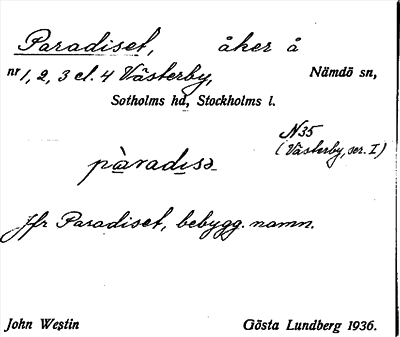 Paradiset, åker å
nr 1, 2, 3 el. 4 Västerby, Nämdö sn,
Sotholms hd, Stockholms l.
N35
(Västerby, ser. I)
pàradisə
Jfr Paradiset, bebygg. namn.
John Westin Gösta Lundberg 1936.